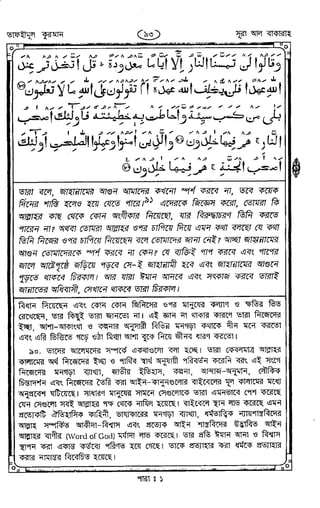 তাফহীমুল কুরআন
৯৩
সূরা আল বাকারাহ
وَقَالُوا لَنْ تَمَسَّنَا النَّارُ إِلَّا أَيَّامًا مَعْدُودَةً قُلْ أَتَّخَذْتُمْ عِنْدَ
اللهِ عَهْدًا فَلَنْ يُخْلِفَ اللهُ عَهْدَهُ أَمْ تَقُولُونَ عَلَى اللهِ مَا لَا تَعْلَمُونَ
بَلَى مَنْ كَسَبَ سَيِّئَةً وَأَحَاطَتْ بِهِ خَطِيئَتُهُ فَأُولَئِكَ أَصْحَبُ
النَّارِ هُمْ فِيهَا خَلِدُونَ وَالَّذِينَ آمَنُوا وَعَمِلُوا الصَّلِحَتِ أُولَئِكَ
أَصْحَبُ الْجَنَّةِ هُمْ فِيهَا خَلِدُونَ
তারা বলে, জাহান্নামের আগুন আমাদের কখনো স্পর্শ করবে না, তবে কয়েক
দিনের শাস্তি হলেও হয়ে যেতে পারে। এদেরকে জিজ্ঞেস করো, তোমরা কি
আল্লাহর কাছ থেকে কোন অংগীকার নিয়েছো, যার বিরুদ্ধাচরণ তিনি করতে
পারেন না? অথবা তোমরা আল্লাহর ওপর চাপিয়ে দিয়ে এমন কথা বলছো যে কথা
তিনি নিজের ওপর চাপিয়ে নিয়েছেন বলে তোমাদের জানা নেই? আচ্ছা জাহান্নামের
আগুন তোমাদেরকে স্পর্শ করবে না কেন? যে ব্যক্তিই পাপ করবে এবং পাপের
জালে আষ্টেপৃষ্ঠে জড়িয়ে পড়বে সে-ই জাহান্নামী হবে এবং জাহান্নামের আগুনে
পুড়তে থাকবে চিরকাল। আর যারা ঈমান আনবে এবং সৎকাজ করবে তারাই
জান্নাতের অধিবাসী, সেখানে থাকবে তারা চিরকাল।
বিধান দিয়েছেন এবং কোন কোন জিনিসের ওপর মানুষের কল্যাণ ও ক্ষতির ভিত
রেখেছেন, তার কিছুই তারা জানতো না। এই জ্ঞান না থাকার কারণে তারা নিজেদের
ইচ্ছা, আশা-আকাংখা ও কল্পনার অনুসারী বিভিন্ন মনগড়া কথাকে দীন মনে করতো
এবং এরি ভিত্তিতে গড়ে ওঠা মিথ্যা আশা বুকে নিয়ে জীবন ধারণ করতো।
৯০. তাদের আলেমদের সম্পর্কে একথাগুলো বলা হচ্ছে। তারা কেবলমাত্র আল্লাহর
কালামের অর্থ নিজেদের ইচ্ছা ও পার্থিব স্বার্থ অনুযায়ী পরিবর্তন করেনি বরং এই সংগে
নিজেদের মনগড়া ব্যাখ্যা, জাতীয় ইতিহাস, কল্পনা, আন্দাজ-অনুমান, লৌকিক
চিন্তাদর্শন এবং নিজেদের তৈরি করা আইন-কানুনগুলোর বাইবেলের মূল কালামের মধ্যে
অনুপ্রবেশ ঘটিয়েছে। সাধারণ মানুষের সামনে সেগুলোকে তারা এমনভাবে পেশ করেছে
যেন সেগুলো সবই আল্লাহর পক্ষ থেকে নাযিল হয়েছে। বাইবেলে স্থান লাভ করেছে এমন
প্রত্যেকটি ঐতিহাসিক কাহিনী, ভাষ্যকারের মনগড়া ব্যাখ্যা, ধর্মতাত্ত্বিক ন্যায়শাস্ত্রবিদের
আল্লাহ সম্পর্কিত আকীদা-বিশ্বাস এবং প্রত্যেক আইন শাস্ত্রবিদের উদ্ভাবিত আইন
আল্লাহর বাণীর (Word of God) মর্যাদা লাভ করেছে। তার প্রতি ঈমান আনা ও বিশ্বাস
স্থাপন করা একান্ত কর্তব্য পরিণত হয়ে গেছে। তাকে প্রত্যাহার করা ধর্মকে প্রত্যাহার
করার নামান্তর বিবেচিত হয়েছে।
পারা : ১